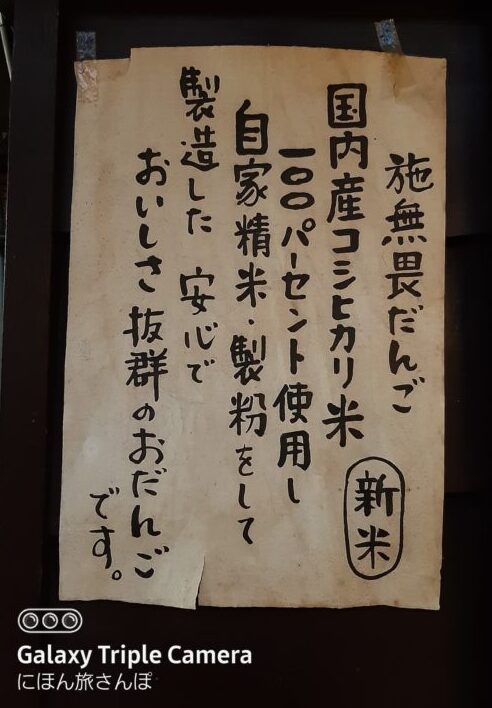 施無畏だんご
国内産コシヒカリ米
新米
一〇〇パーセント使用し
自家精米・製粉をして
製造した 安心で
おいしさ抜群のおだんご
です。
Galaxy Triple Camera
にほん旅さんぽ